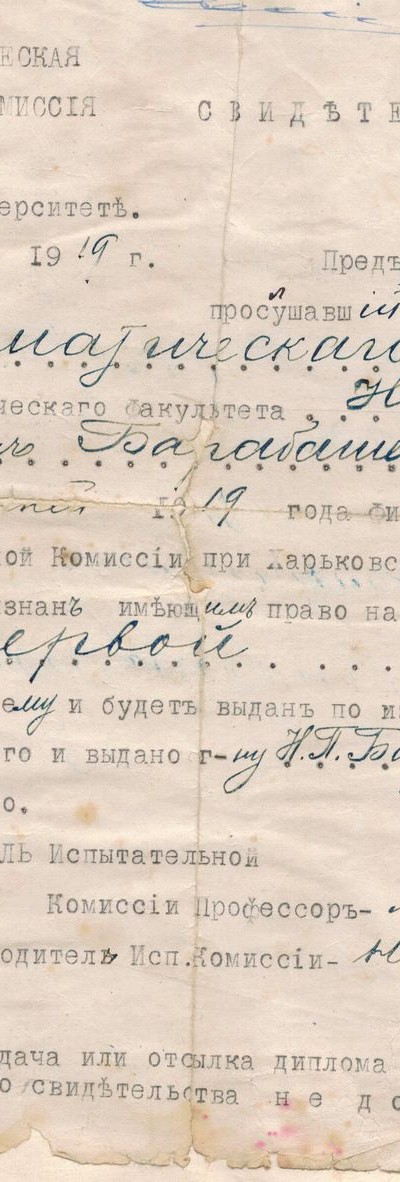 ЕСКАЯ
МИССІЯ СВИДѢТЕ
ерситетѣ.
1919 г. Предъ
прослушавшій
матическаго
ческаго факультета Н
ъ Барабаше
1919 года Фи
ой Комиссіи при Харьковс
изнанъ имѣющимъ право на
ервой
ему и будетъ выданъ по из
го и выдано г-ну Н.П.Ба
о.
ЛЬ Испытательной
Комиссіи Профессоръ-
одитель Исп.Комиссіи- Н
дача или отсылка диплома
о свидѣтельства не до